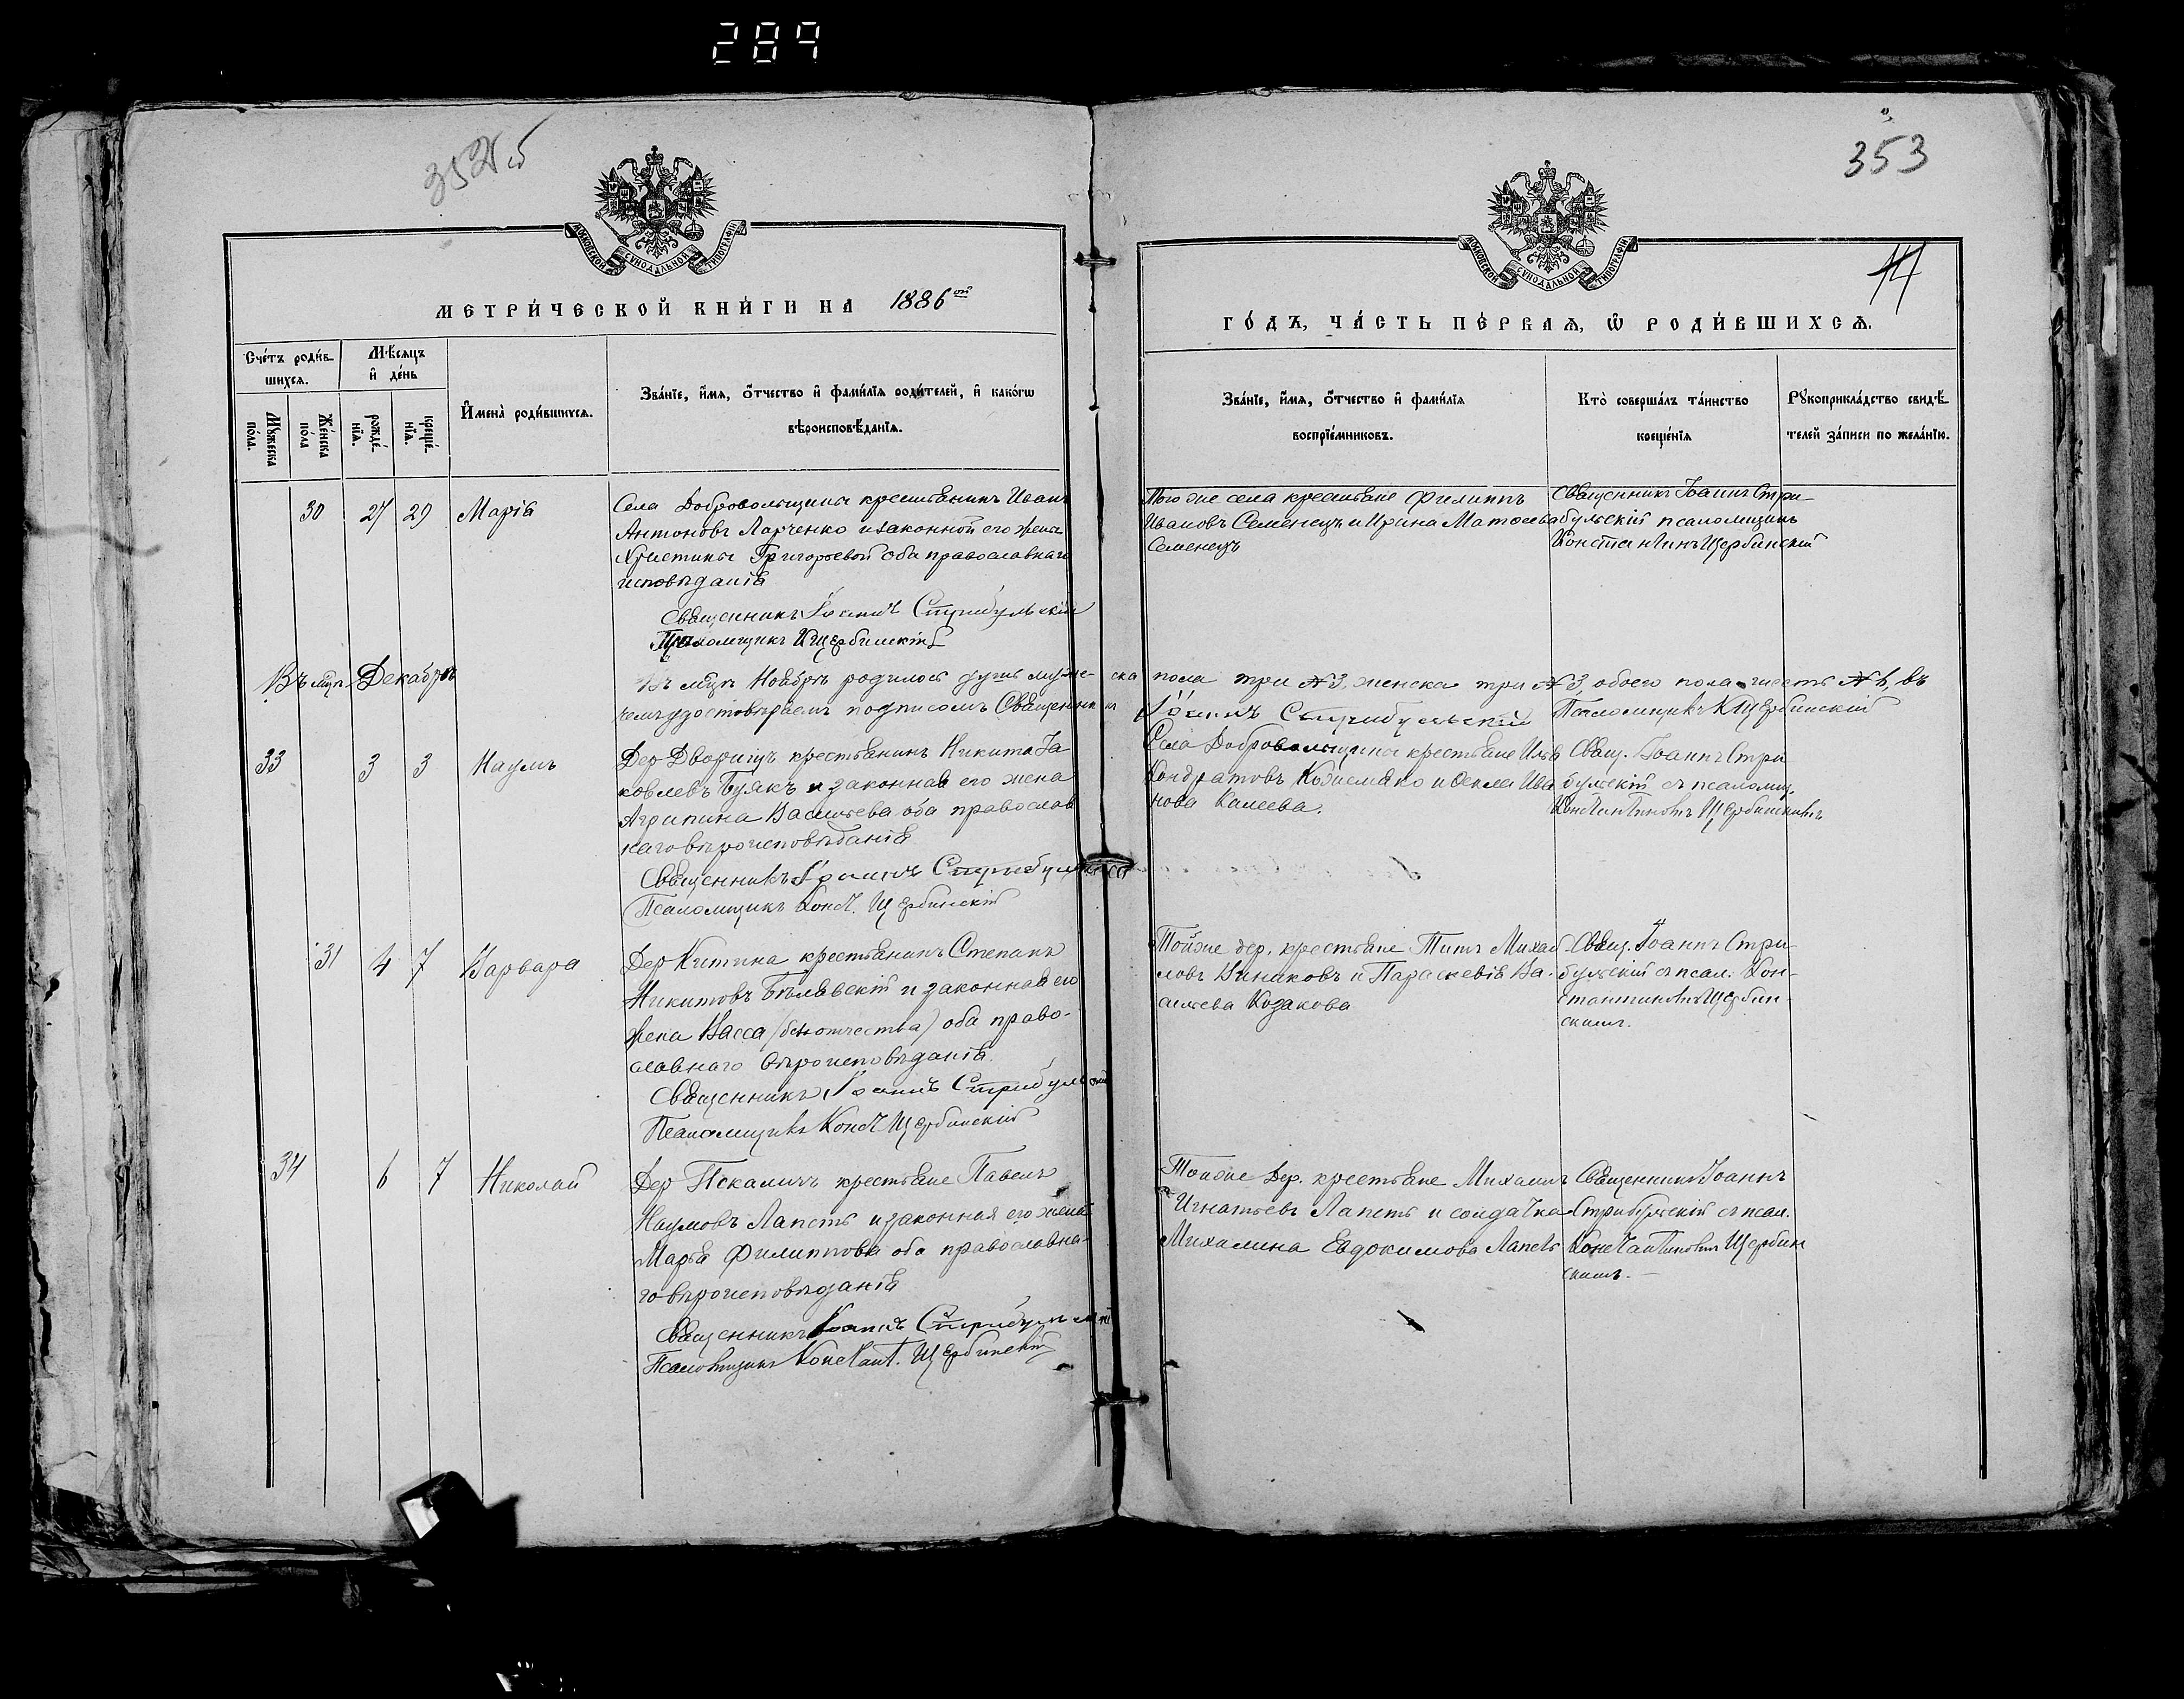 289
352об
353
14
МОСКОВСКОЙ СѴНОДАЛЬНОЙ ТИПОГРАФІИ
МОСКОВСКОЙ СѴНОДАЛЬНОЙ ТИПОГРАФІИ
МЕТРИ́ЧЕСКОЙ КНИ́ГИ НА 1886ой
ГО́ДЪ, ЧА́СТЬ ПЕ́РВАѦ, Ѡ РОДИ́ВШИХСѦ.
Сче́тъ роди́вшихсѧ.
Мѣ́сѧцъ и҆ де́нь
Мꙋ́жеска по́ла.
Же́нска по́ла
рожде́нїѧ.
креще́нїѧ.
И҆мена̀ роди́вшихсѧ.
Зва́нїе, и҆́мѧ, ѻ҆́тчество и҆ фами́лїѧ роди́телей, и҆ како́гѡ
вѣроисповѣ́данїѧ.
Зва́нїе, и҆́мѧ, ѻ҆́тчество и҆ фами́лїѧ
воспрїе́мниковъ.
Кто̀ соверша́лъ та́инство
креще́нїѧ
Рꙋкоприкла́дство свидѣ́телей за́писи по жела́нїю.
30 27 29 Марія
Села Добровольщины крестьянинъ Иванъ
Антоновъ Ларченко и законной его жены
Христины Григорьевой оба православнаго
исповѣданія
Священникъ Іоаннъ Стрибульскій
Псаломщикъ К Щербинскій
Того же села крестьяне Филиппъ
Ивановъ Семенецъ и Ирина Матѳеева
Семенецъ
Священникъ Іоаннъ Стри
бульскій псаломщикъ
Константинъ Щербинскій
Въ мцѣ Декабрѣ
Въ мцѣ Ноябрѣ родилось душъ мужеска пола три №3, женска три №3, обоего пола шесть №6, въ
чемъ удостовѣряемъ подписомъ Священникъ Іоаннъ Стрибульскій Псаломщикъ К Щербинскій
33 3 3 Наумъ
Дер Дворищъ крестьянинъ Никита Яковлевъ Буякъ и законная его жена
Агрипина Васильева оба православ
наго вѣроисповѣданія
Священникъ Іоаннъ Стрибульскій
Псаломщикъ Конст. Щербинскій
Села Добровольщины крестьяне Илья
Кондратовъ Кожемяко и Ѳекла Ива
нова Калеева.
Свящ. Іоаннъ Стри
бульскій съ псаломщ.
Константиновъ Щербинскимъ
31 4 7 Варвара
Дер Китина крестьянинъ Степанъ
Никитовъ Бѣлявскій и законная его
жена Васса (безъ отчества) оба право-
славнаго вѣроисповѣданія.
Священникъ Іоаннъ Стрибульскій
Псаломщикъ Конст Щербинскій
Тойже дер. крестьяне Титъ Михай
ловъ Виниковъ и Параскевія Ва-
сильева Козакова
Свящ. Іоаннъ Стри-
бульскій съ псал. Кон-
стантиновъ Щербин-
скимъ.
34 6 7 Николай
Дер Пекаличъ крестьяне Павелъ
Наумовъ Лапеть и законная его жена
Марья Филиппова оба православна-
го вѣроисповѣданія
Священникъ Іоаннъ Стрибульскій
Псаломщикъ Констант. Щербинскій
Тойже Дер. крестьяне Михаилъ
Игнатьевъ Лапеть и солдатка
Михалина Евдокимова Лапеть
Священникъ Іоаннъ
Стрибульскій съ псал.
Константиновъ Щербин
скимъ.